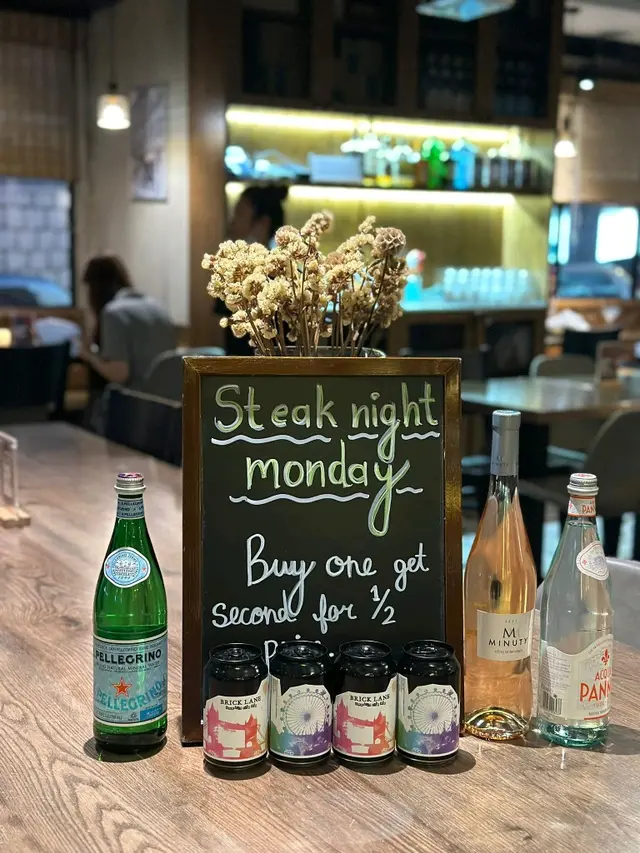 Steak night
monday
Buy one get
second for 1/2
S.PELLEGRINO
S.PELLEGRINO
BRICK LANE
BRICK LANE
M
MINUTY
ACQUA
PANNA